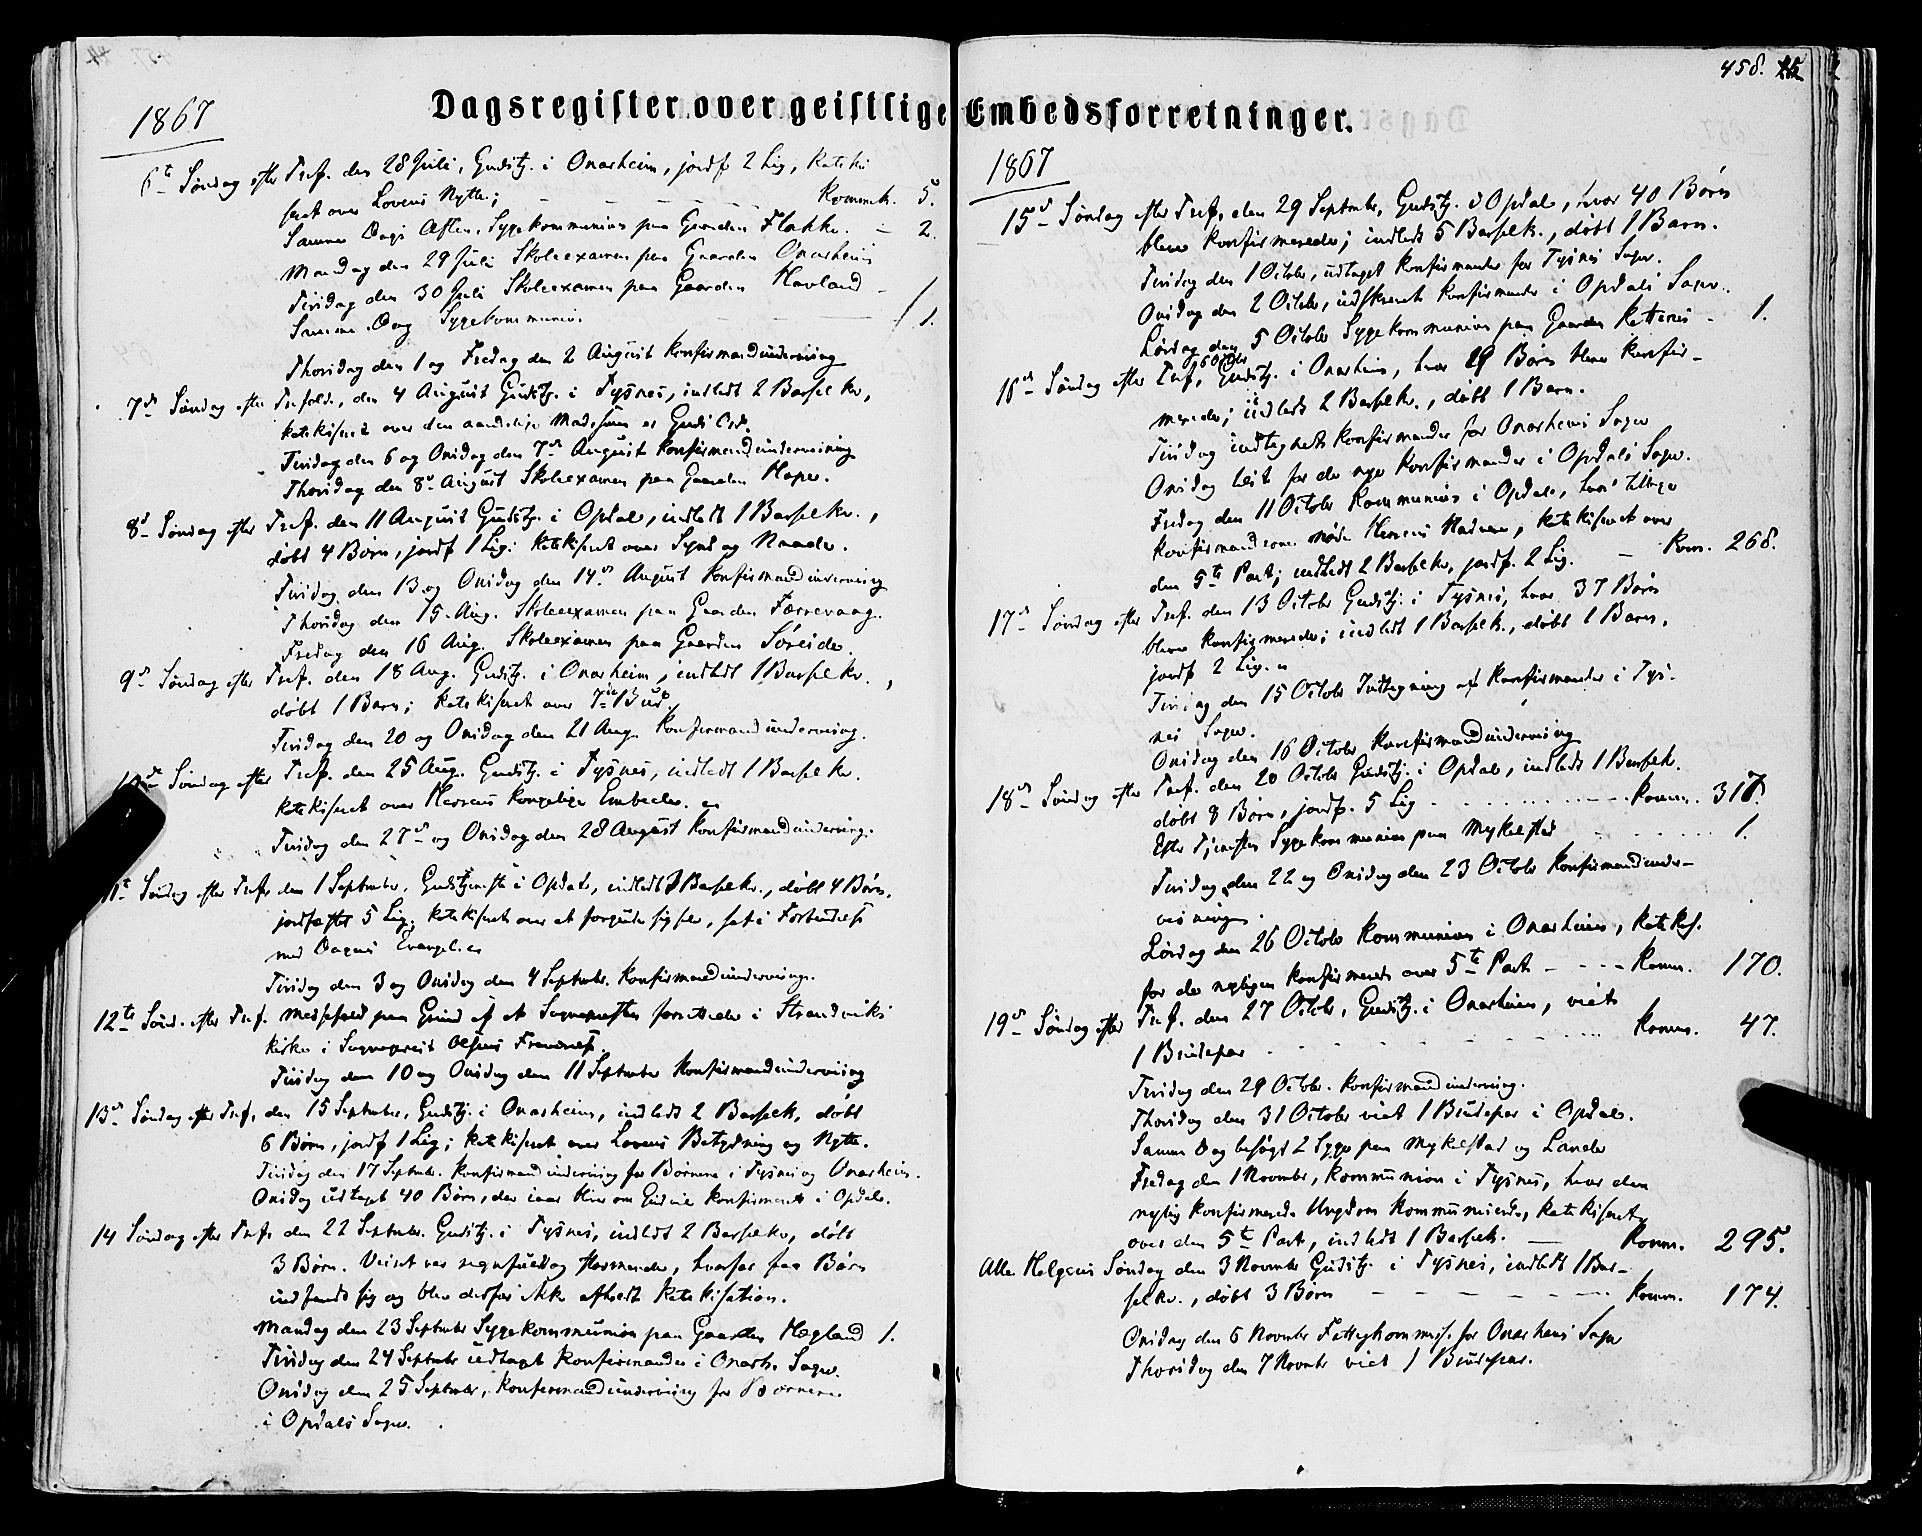 458.
Dagsregister over geistlige Embedsforretninger.
1867
6te Søndag efter Tref. den 28 Juli, Gudstj. i Onarheim, jordf 2 Lig, Kateki
seret over Lovens Nytte; Kommk. 5.
Samme Dags Aften, Sygekommunion paa Gaarden Flakke. – 2.
Mandag den 29 Juli Skoleexamen paa Gaarden Onarheim
Tirsdag den 30 Juli Skoleexamen paa Gaarden Havland
Samme Dag Sygekommunion. 1.
Thorsdag den 1 og Fredag den 2 August Konfirmandundervisning
7de Søndag efter Trefold., den 4 August Gudstj. i Tysnes, indledt 2 Barselkr,
katekiseret over den aandelige Madsom er Guds Ord.
Tirsdag den 6 og Onsdag den 7de August Konfirmandundervisning
Thorsdag den 8de August Skoleexamen paa Gaarden Hope.
8de Søndag efter Tref. den 11 August Gudstj. i Opdal, indledt 1 Barselkr.,
døbt 4 Børn, jordf 1 Lig; katekiseret over Synd og Naade.
Tirsdag den 13 og Onsdag den 14de August Konfirmandundervisning
Thorsdag den 15 Aug. Skoleexamen paa Gaarden Færrevaag.
Fredag den 16 Aug. Skoleexamen paa Gaarden Søreide.
9de Søndag efter Tref. den 18 Aug. Gudstj. i Onarheim, indledt 1 Barselkr.,
døbt 1 Barn; katekiseret over 7de Bud.
Tirsdag den 20 og Onsdag den 21 Aug. Konfirmandundervisning.
10de Søndag efter Tref. den 25 Aug. Gudstj. i Tysnes, indledt 1 Barselkr.
katekiseret over Herrens kongelige Embede.
Tirsdag den 27de og Onsdag den 28 August Konfirmandunderving.
11te Søndag efter Tref. den 1 September, Gudstjeneste i Opdal, indledt 3 Barselkr., døbt 4 Børn.
jordfæstet 5 Lig; katekiseret over at forgude sig selv, sat i Forbindelse
med Dagens Evangel.
Tirsdag den 3 og Onsdag den 4 Septembr. Konfirmandundervisning.
12te Sønd. efter Tref. Messefald paa Grund af at Sognepresten forrettede i Strandviks
Kirke i Sogneprest Olsens
Tirsdag den 10 og Onsdag den 11 September Konfirmandundervisning
13de Søndag efter Tref. den 15 September, Gudstj. i Onarheim, indledt 2 Barselk, døbt
6 Børn, jordf 1 Lig; katekiseret over Lovens Betydning og Nytte.
Tirsdag den 17 Septembr. Konfirmandundervisning for Børnene i Tysnes og Onarheim.
Onsdag udtaget 40 Børn, der iaar blive om Gud vil konfirmeret i Opdal.
14 Søndag efter Tref. den 22 Septembr. Gudstj. i Tysnes, indledt 2 Barselkv, døbt
3 Børn. Veiret var regnfuldt og stormende, hvorfor faa Børn
indfandt sig og blev derfor ikke afholdt Katekisation.
Mandag den 23 Septembr Sygekommunion paa Gaarden Hegland 1.
Tirsdag den 24 Septembr udtaget Konfirmander i Onarh. Sogn.
Onsdag den 25 September, Konfirmandundervisning for Børnene
i Opdals Sogn.
1867
15de Søndag efter Tref. den 29 Septembr, Gudstj. i Opdal, hvor 40 Børn
bleve konfirmerede; indledt 5 Barselk., døbt 1 Barn.
Tirsdag den 1 Octobr, udtaget Konfirmander for Tysnes Sogn.
Onsdag den 2 Octobr, indskrevet Konfirmander i Opdals Sogn.
Lørdag den 5 October Sygekommunion paa Gaarden 1.
16de Søndag efter Tref. 6 Octobr Gudstj. i Onarheim, hvor 19 Børn bleve konfir-
merede; indledt 2 Barselkr., døbt 1 Barn.
Tirsdag indtegnedt Konfirmander for Onarheims Sogn
Onsdag læst for de nye Konfirmander i Opdals Sogn.
Fredag den 11 October Kommunion i Opdal, hvor tillige
Konfirmanderne nøde Herrens Nadvere, katekiseret over
den 5te Part; indledt 2 Barselkr, jordf. 2 Lig. – Kom. 268.
17de Søndag efter Tref. den 13 October Gudstj. i Tysnes, hvor 37 Børn
bleve konfirmerede; indledt 1 Barselk., døbt 1 Barn,
jordf 2 Lig.
Tirsdag den 15 October Indtegning af Konfirmander i Tys-
nes Sogn.
Onsdag den 16 October Konfirmandundervisning
18de Søndag efter Tref. den 20 Octobr Gudstj. i Opdal, indledt 1 Barselk.
døbt 8 Børn, jordf. 5 Lig Komm. 317.
Efter Tjenesten Sygekommunion paa Mykelstad 1.
Tirsdag den 22 og Onsdag den 23 Octobr Konfirmandunder-
visningen.
Lørdag den 26 Octobr Kommunion i Onarheim, katekes.
for de nyligen konfirmerede over 5te Part – Komm. 170.
19de Søndag efter Tref. den 27 Octobr, Gudstj. i Onarheim, viet
1 Brudepar Komm. 47.
Tirsdag den 29 Octobr. Konfirmandunderving.
Thorsdag den 31 October viet 1 Brudepar i Opdal.
Samme Dag besøgt 2 Syge paa Mykelstad og Lande
Fredag den 1 Novembr, Kommunion i Tysnes, hvor den
nylig konfirmerede Ungdom kommunicerede, katekiseret
over den 5te Part, indledt 1 Barselk. – Komm. 295.
Alle Helgens Søndag den 3 Novembr Gudstj. i Tysnes, indledt 1 Bar-
selkv., døbt 3 Børn Komm. 174.
Onsdag den 6 Novembr Fattigkommis. for Onarheims Sogn
Thorsdag den 7 Novembr viet 1 Brudepar.